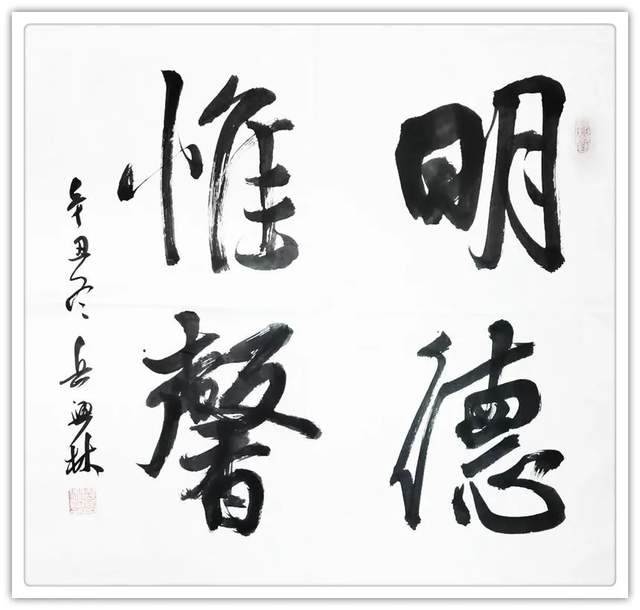 明德
惟馨
辛丑冬 岳興林